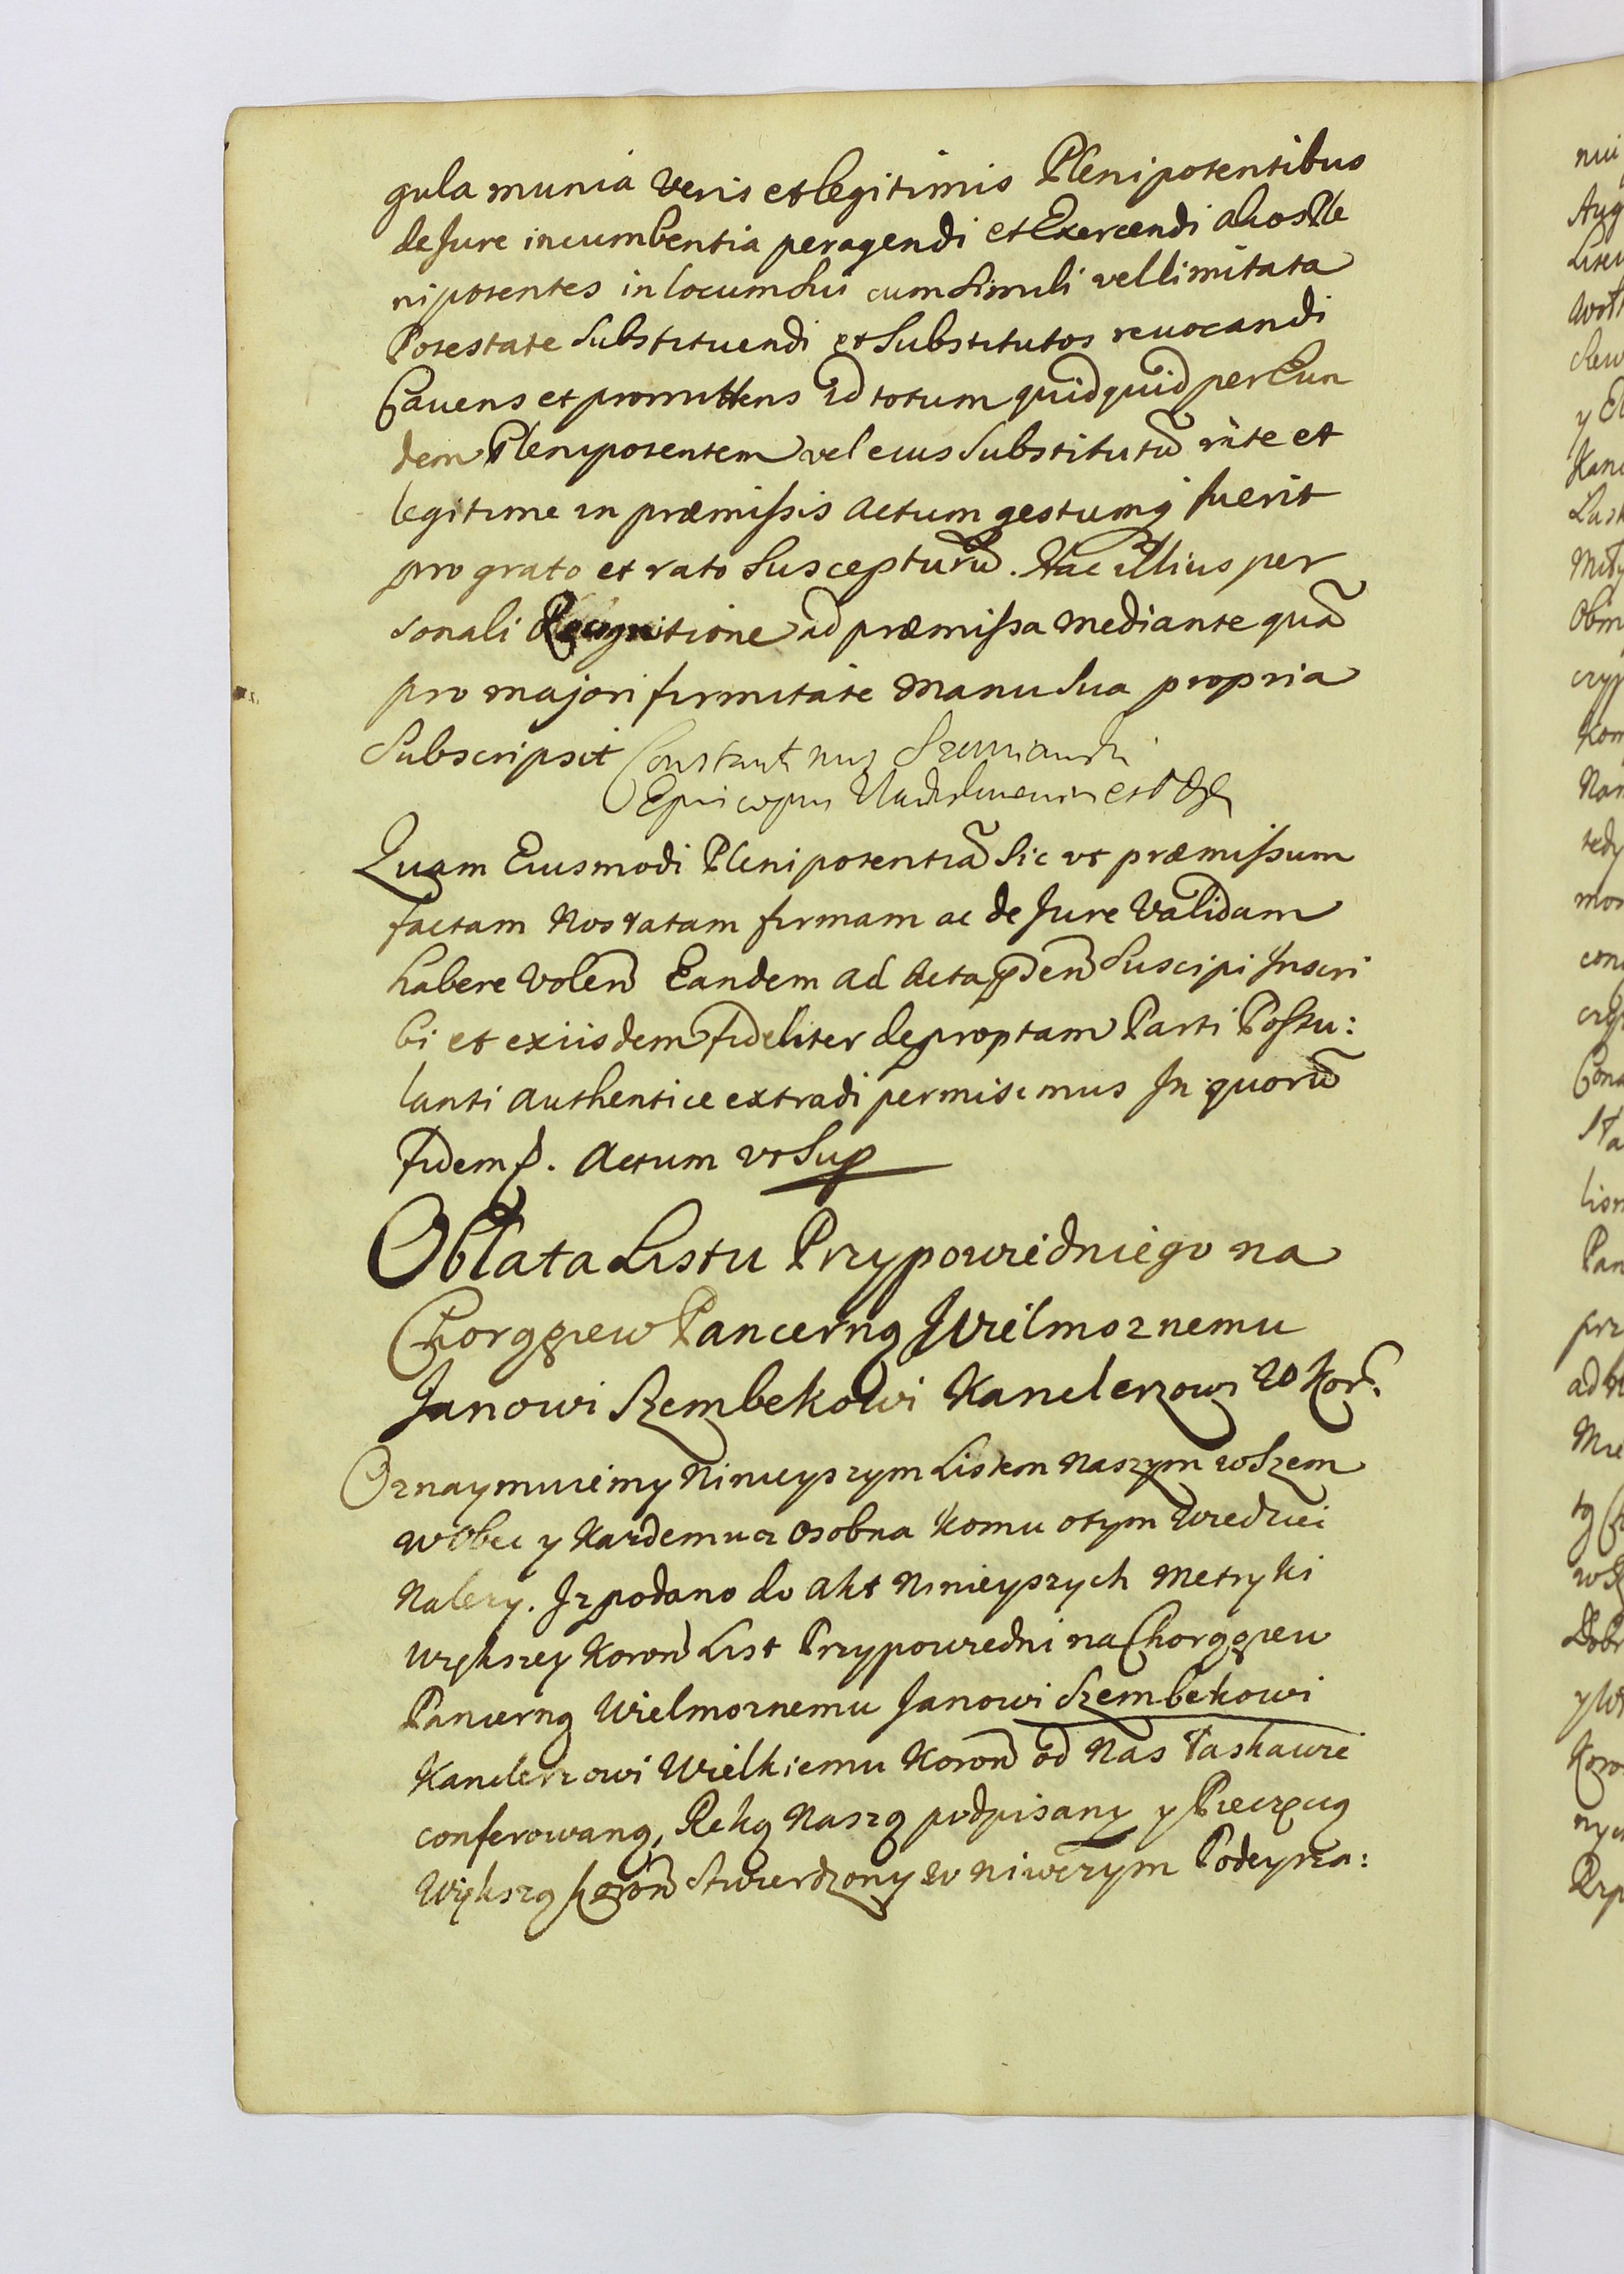 gula munia veris et legitimis Plenipotentibus
de Jure incumbentia peragendi et Exercendi alios Ple
nipotentes in locum sui cum simili vel limitata
Potestate substituendi et substitutos revocandi
Cavens et promittens id totum quidquid per Eun
dem Plenipotentem vel eius substitutũ rite et
legitime in præmissis actum gestumqꝫ fuerit
pro grato et rato suscepturũ. Hac illius per
sonali Recognitione ad præmissa mediante quã
pro majori firmitate manu sua propria
Subscripsit Constantinus Szeniawski
Episcopus
Quam Eiusmodi Plenipotentiã sic ut præmissum
factam Nos ratam firmam ac de Jure validam
habere volen̄ Eandem ad Acta p̄den̄ suscipi Inscri
bi et ex iisdem fideliter depromptam Parti Postu:
lanti authentice extradi permisimus In quorũ
fidem p. Actum ut Sup
Oblata Listu Przypowiedniego na
Chorągiew Pancerną Jwielmoznemu
Janowi Szembekowi Kanclerzowi W Kor̄.
Oznaymuiemy Ninieyszym Listem Naszym wszem
wobec y Kazdemu z osobna komu o tym wiedziei
Nalezy. Iz podano do akt Ninieyszych Metryki
większey Koron̄ List Przypowiedni na Chorągiew
Pancerną Wielmoznemu Janowi Szembekowi
Kanclerzowi Wielkiemu Koron̄ od Nas łaskawie
conferowaną, Ręką Naszą podpisany y Pieczęcią
Większą Koron̄ stwierdzony w niwczym Podeyrza: